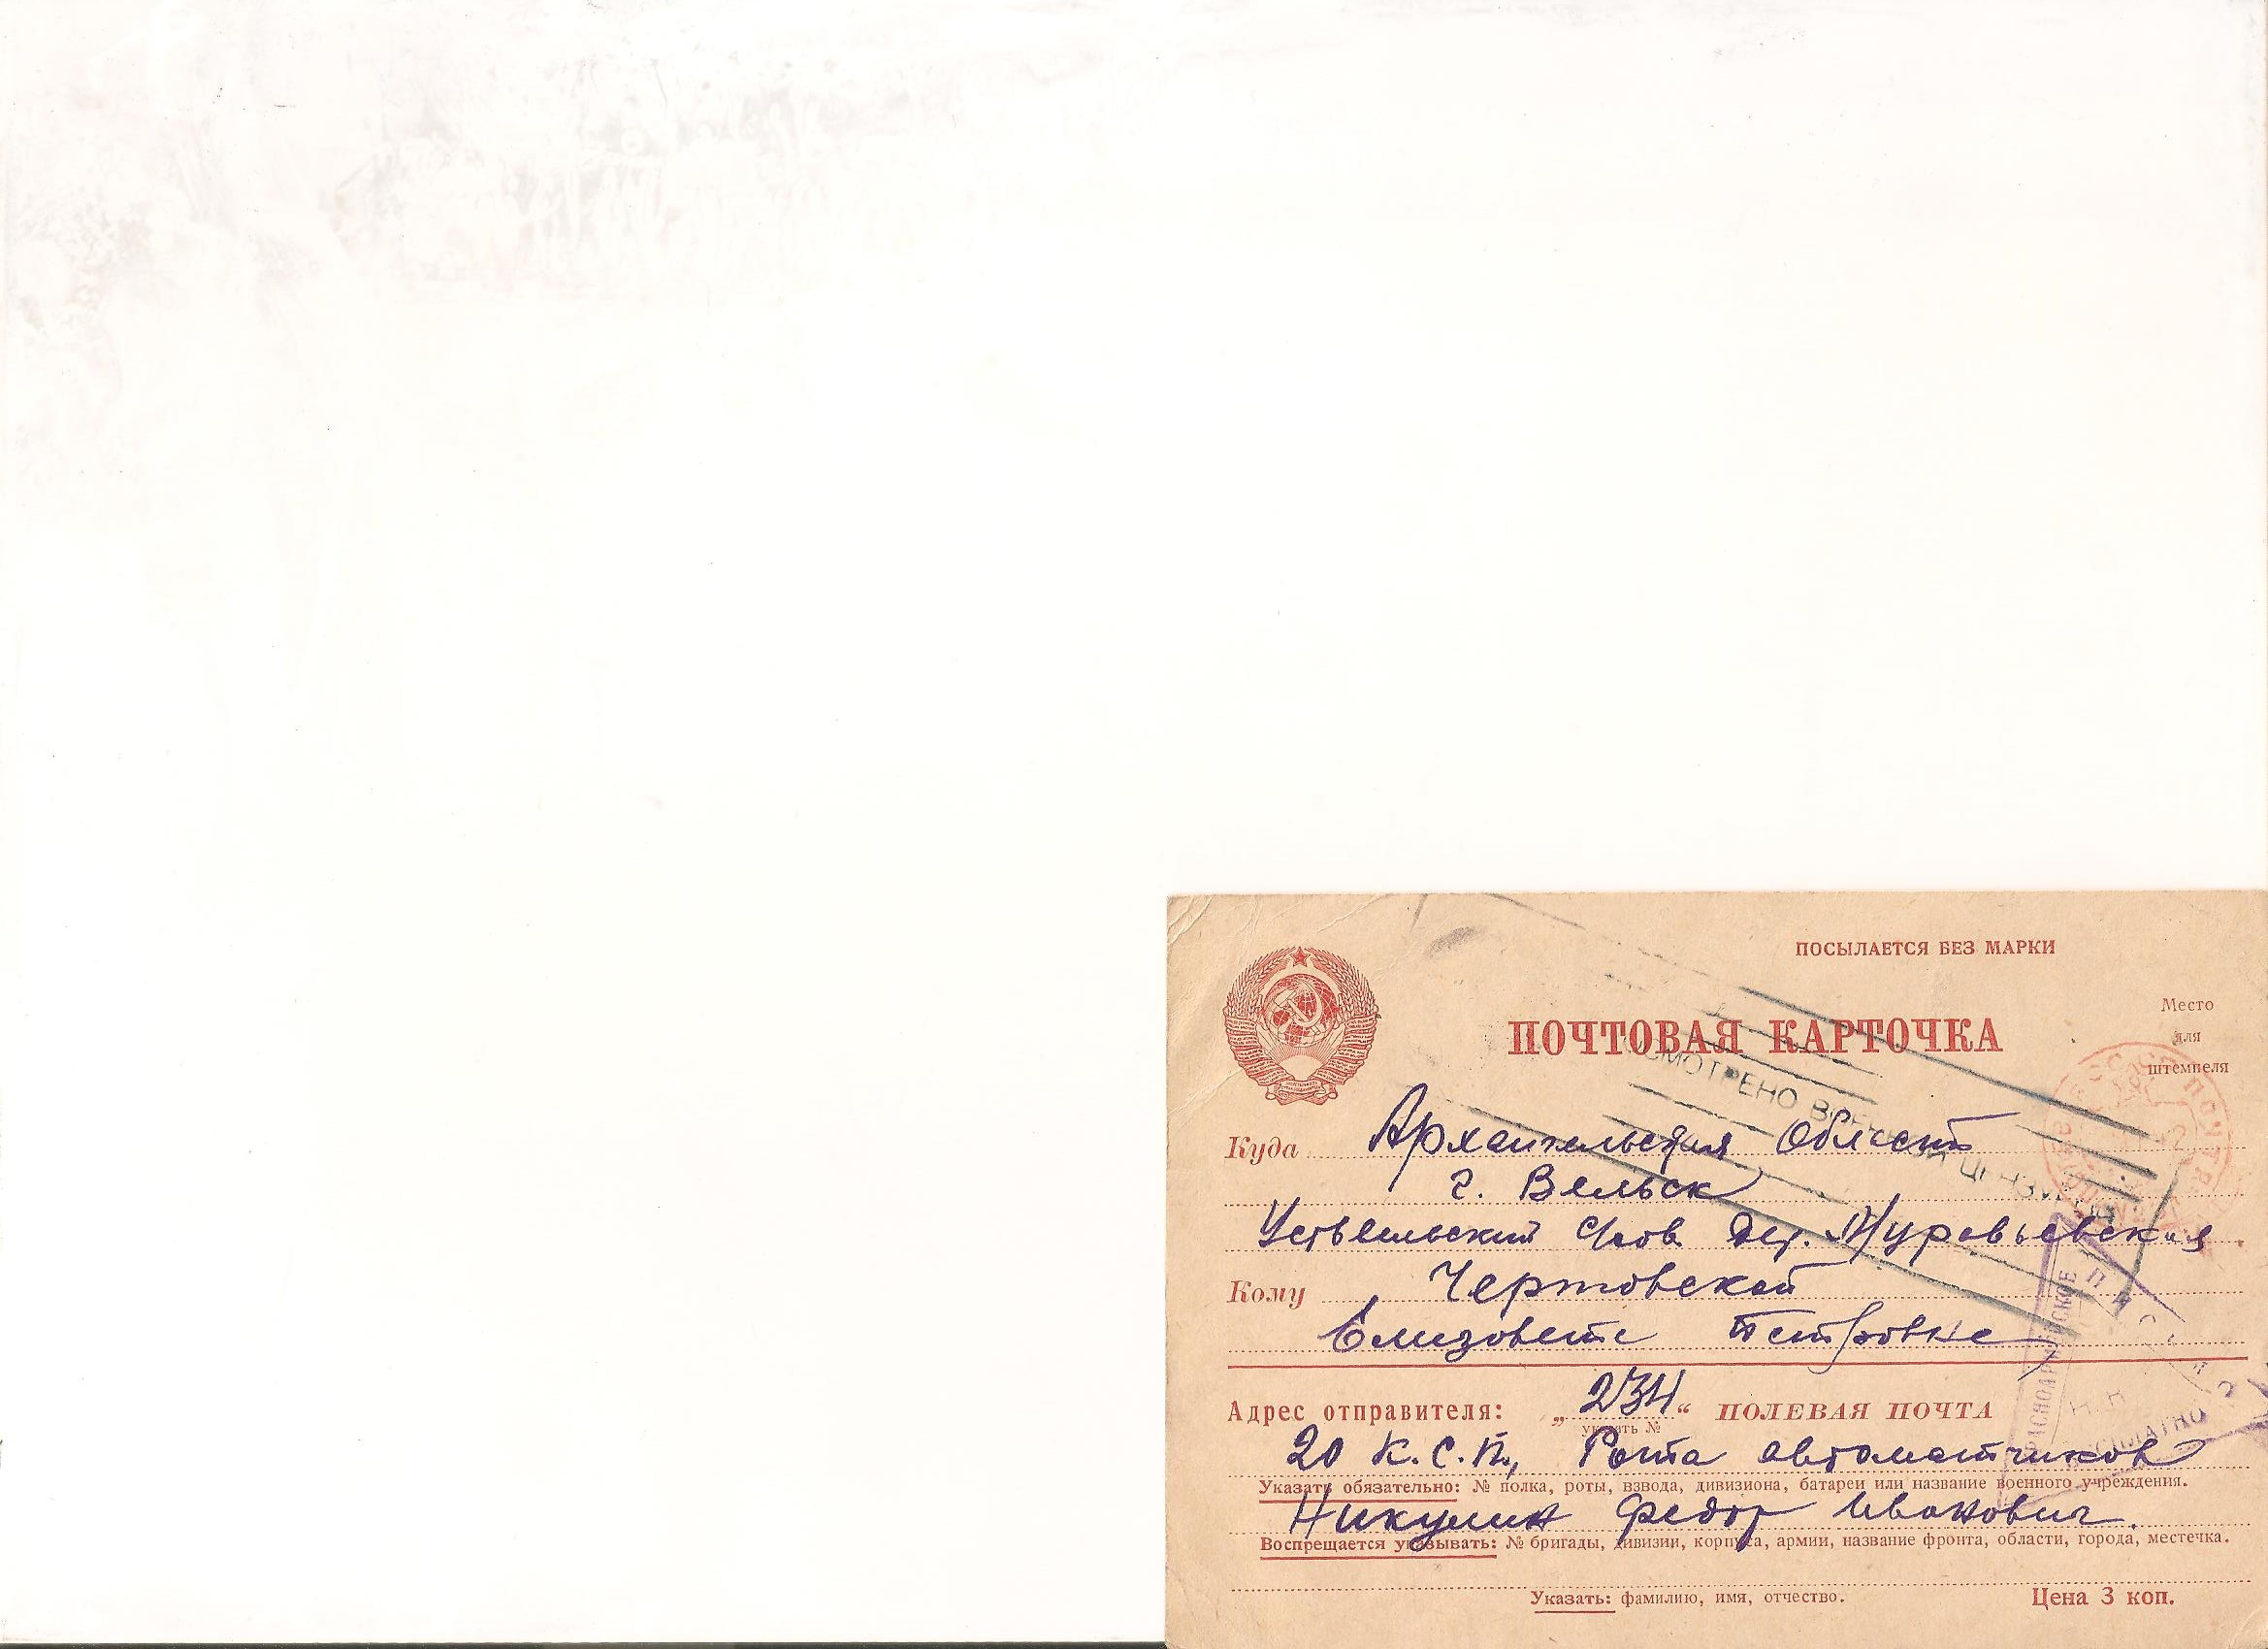 ПОСЫЛАЕТСЯ БЕЗ МАРКИ
Место
для
штемпеля
ПОЧТОВАЯ КАРТОЧКА
Куда Архангельская Область
г. Вельск
Устьвельский с/сов. дер. Муравьевская
Кому Чертовской
Елизовете Петровне
Адрес отправителя: „234“ ПОЛЕВАЯ ПОЧТА
указать №
20 К.С.П., Рота автоматчиков
Указать обязательно: № полка, роты, взвода, дивизиона, батареи или название военного учреждения.
Никулин Федор Иванович.
Воспрещается указывать: № бригады, дивизии, корпуса, армии, название фронта, области, города, местечка.
Указать: фамилию, имя, отчество.
Цена 3 коп.
КРАСНОАРМЕЙСКОЕ